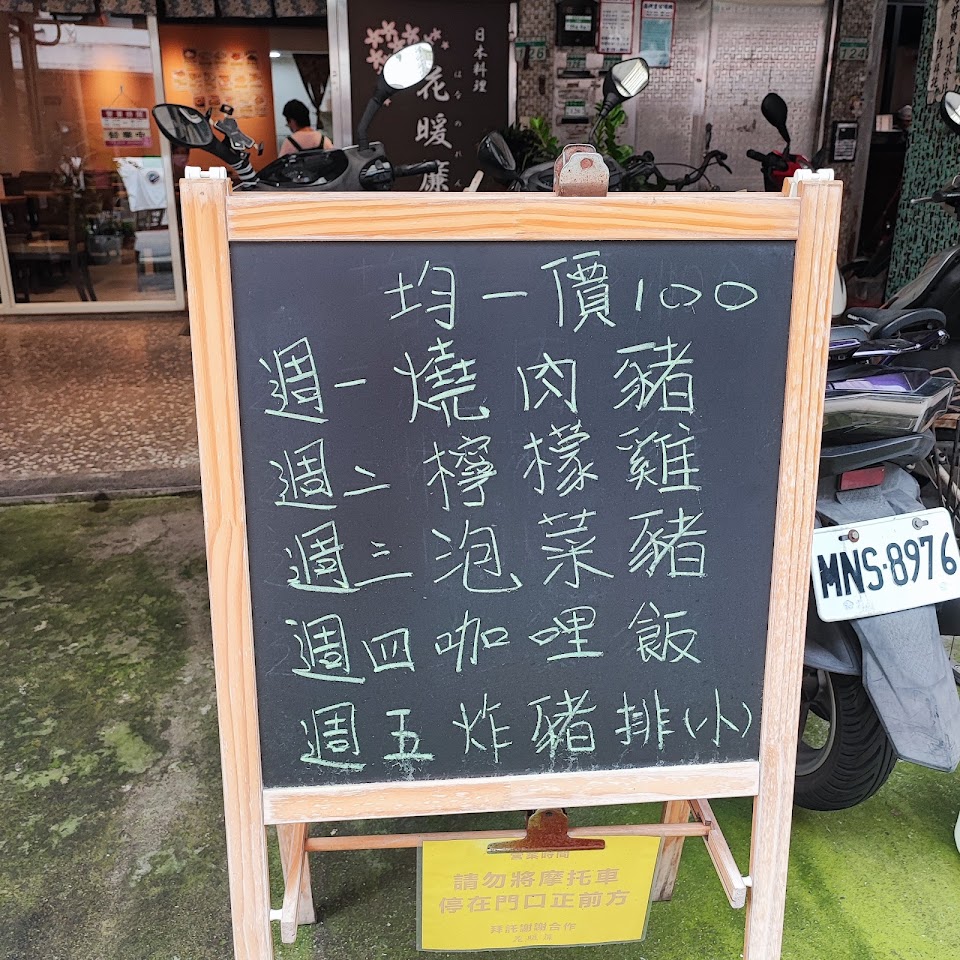 日本料理
花暖簾
はなのれん
均一價100
週一燒肉豬
週二檸檬雞
週三泡菜豬
週四咖哩飯
週五炸豬排(小)
MNS-8976
營業時間
請勿將摩托車
停在門口正前方
拜託謝謝合作